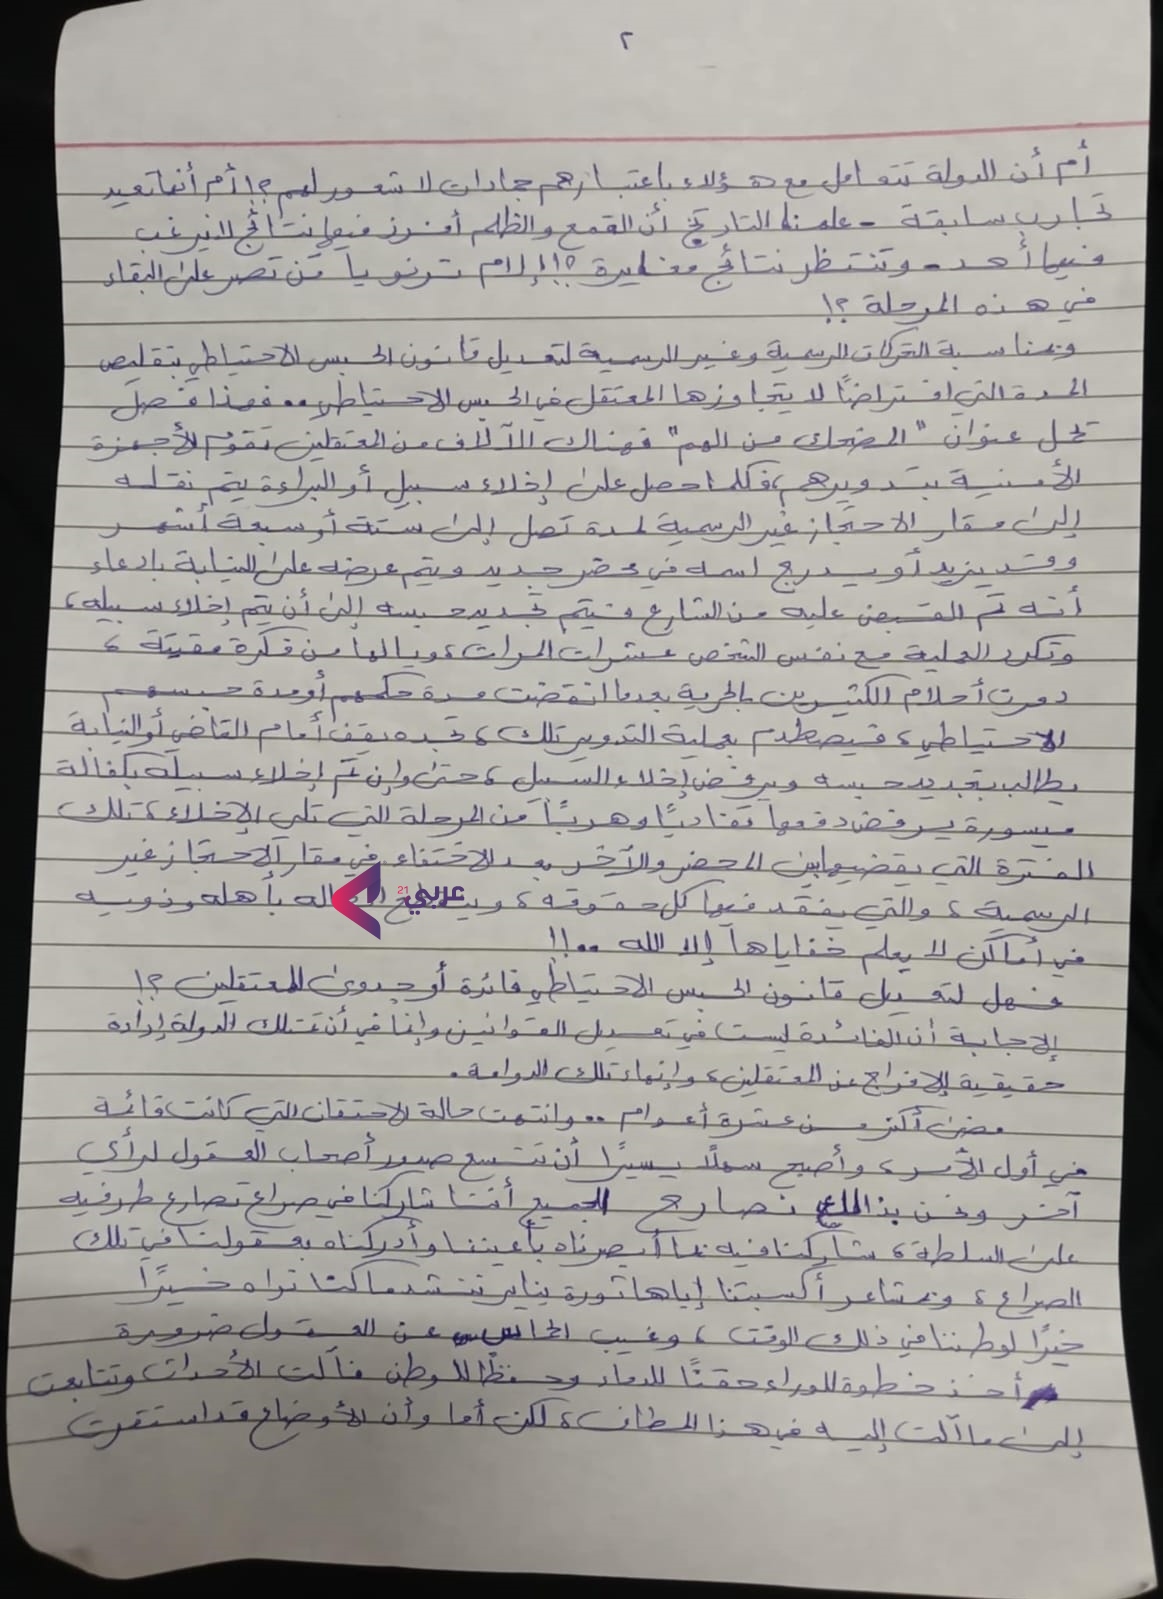 ٢
أم أن الدولة تتعامل مع هؤلاء باعتبارهم جمادات لا شعور لهم ؟! أم أنها تعيد
تجارب سابقة - علمنا التاريخ أن القمع والظلم أفرز فيها نتائج لا يرغب
فيها أحد - وتنتظر نتائج مغايرة ؟!! إلام ترنو يا من تصر على البقاء
في هذه المرحلة ؟!
وبمناسبة التحركات الرسمية وغير الرسمية لتعديل قانون الحبس الاحتياطي بتقليص
المدة التي افتراضًا لا يتجاوزها المعتقل في الحبس الاحتياطي .. فهذا فصل
تحل عنوان "المضحك من الهم" فهناك الآلاف من المعتقلين تقوم الأجهزة
الأمنية بتدويرهم، فكلما حصل على إخلاء سبيل أو البراءة يتم نقله
إلى مقار الاحتجاز غير الرسمية لمدة تصل إلى ستة أو سبعة أشهر
وقد يزيد أو يدرج اسمه في محضر جديد ويتم عرضه على النيابة بادعاء
أنه تم القبض عليه من الشارع فيتم تجديد حبسه إلى أن يتم إخلاء سبيله،
وتكرر العملية مع نفس الشخص عشرات المرات، ويا لها من فكرة مقيتة ،
دمرت أحلام الكثيرين بالحرية بعدما انقضت مدة حكمهم أو مدة حبسهم
الاحتياطي ، فيصطدم بعملية التدوير تلك ، تجده يقف أمام القاضي أو النيابة
يطالب بتجديد حبسه ويرفض إخلاء السبيل ، حتى وإن تم إخلاء سبيله بكفالة
ميسورة يرفض دفعها تفاديًا وهربًا من المرحلة التي تلي الإخلاء ، تلك
الفترة التي يقضيها بين المحضر والآخر بعد الاختفاء في مقار الاحتجاز غير
الرسمية ، والتي يفقد فيها كل حقوقه ، بأهله وذويه
عربي 21
في أماكن لا يعلم خفاياها إلا الله ..!!
فهل لتعديل قانون الحبس الاحتياطي فائدة أو جدوى للمعتقلين ؟!
الإجابة أن الفائدة ليست في تعديل القوانين وإنما في أن تمتلك الدولة إرادة
حقيقية للإفراج عن المعتقلين ، وإنهاء تلك الدوامة .
مضى أكثر من عشرة أعوام .. وانتهت حالة الاحتقان التي كانت قائمة
في أول الأمر ، وأصبح سهلًا يسيرًا أن تتسع صدور أصحاب العقول لرأي
آخر ونحن بذلك نصارح الجميع أننا شاركنا في صراع تصارع طرفيه
على السلطة ، شاركنا فيه بما أبصرناه بأعيننا وأدركناه بعقولنا في تلك
الصراع ، وبمشاعر أكسبتنا إياها ثورة يناير تنشد ما كنا نراه خيرًا
خيرًا لوطننا في ذلك الوقت ، وغيب الحماس عن العقول ضرورة
أخذ خطوة للوراء حقنًا للدماء وحفظًا للوطن فآلت الأحداث وتتابعت
إلى ما آلت إليه في هذا المطاف ، لكن أما وأن الأوضاع قد استقرت